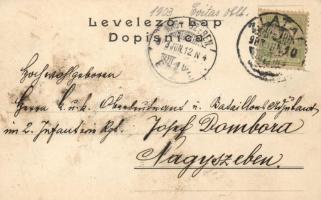 1903
Levelező-Lap
Dopisnica
Hochwohlgeboren
Herrn k.u.k. Oberleutnant u. Bataillons Adjutant
im 2. Infanterie Rgt. Josef Dombora
Nagyszeben.